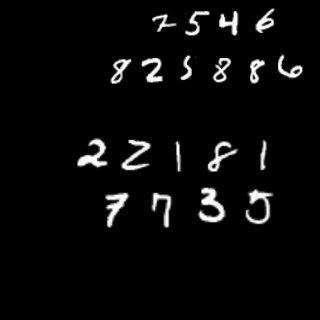 7546
825886
22181
7735